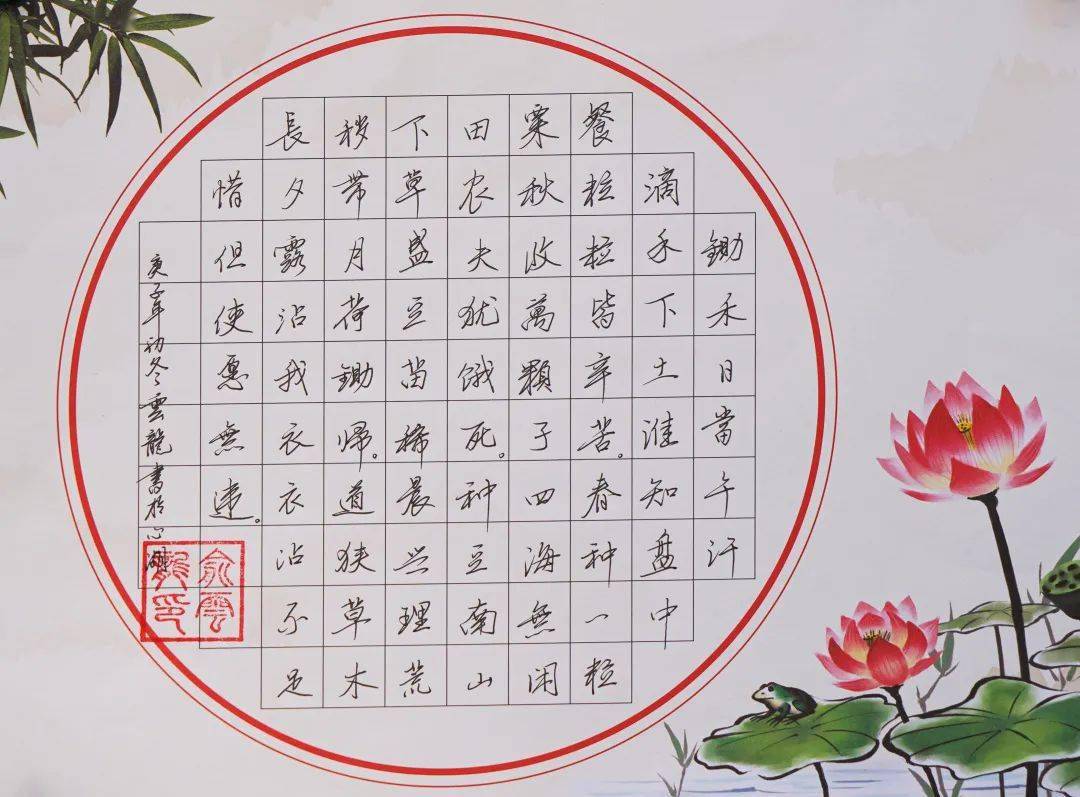 鋤禾日當午汗
滴禾下土谁知盘中
餐粒粒皆辛苦。春种一粒
粟秋收萬顆子四海無闲
田农夫犹饿死。种豆南山
下草盛豆苗稀晨兴理荒
秽带月荷鋤帰。道狭草木
長夕露沾我衣衣沾不足
惜但使愿無違。
庚子年初冬雲龍書於心湖
俞雲
龍印